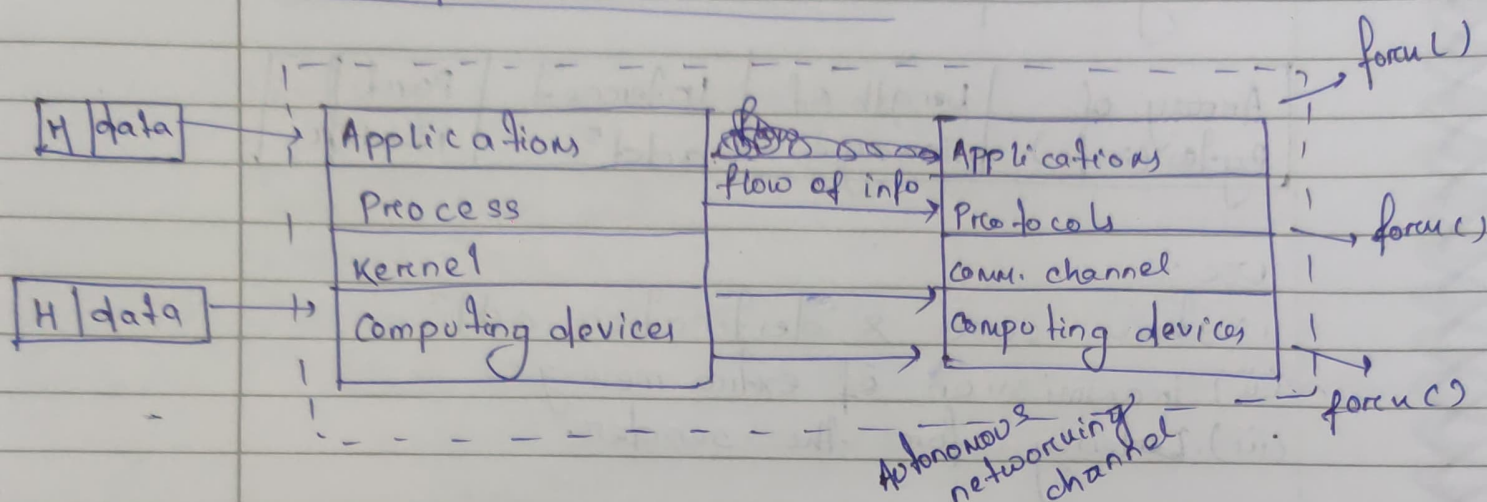 H data
Applications
Process
Kernel
Computing devices
H data
flow of info
Applications
Protocols
Comm. channel
Computing devices
Autonomous
networking
channel